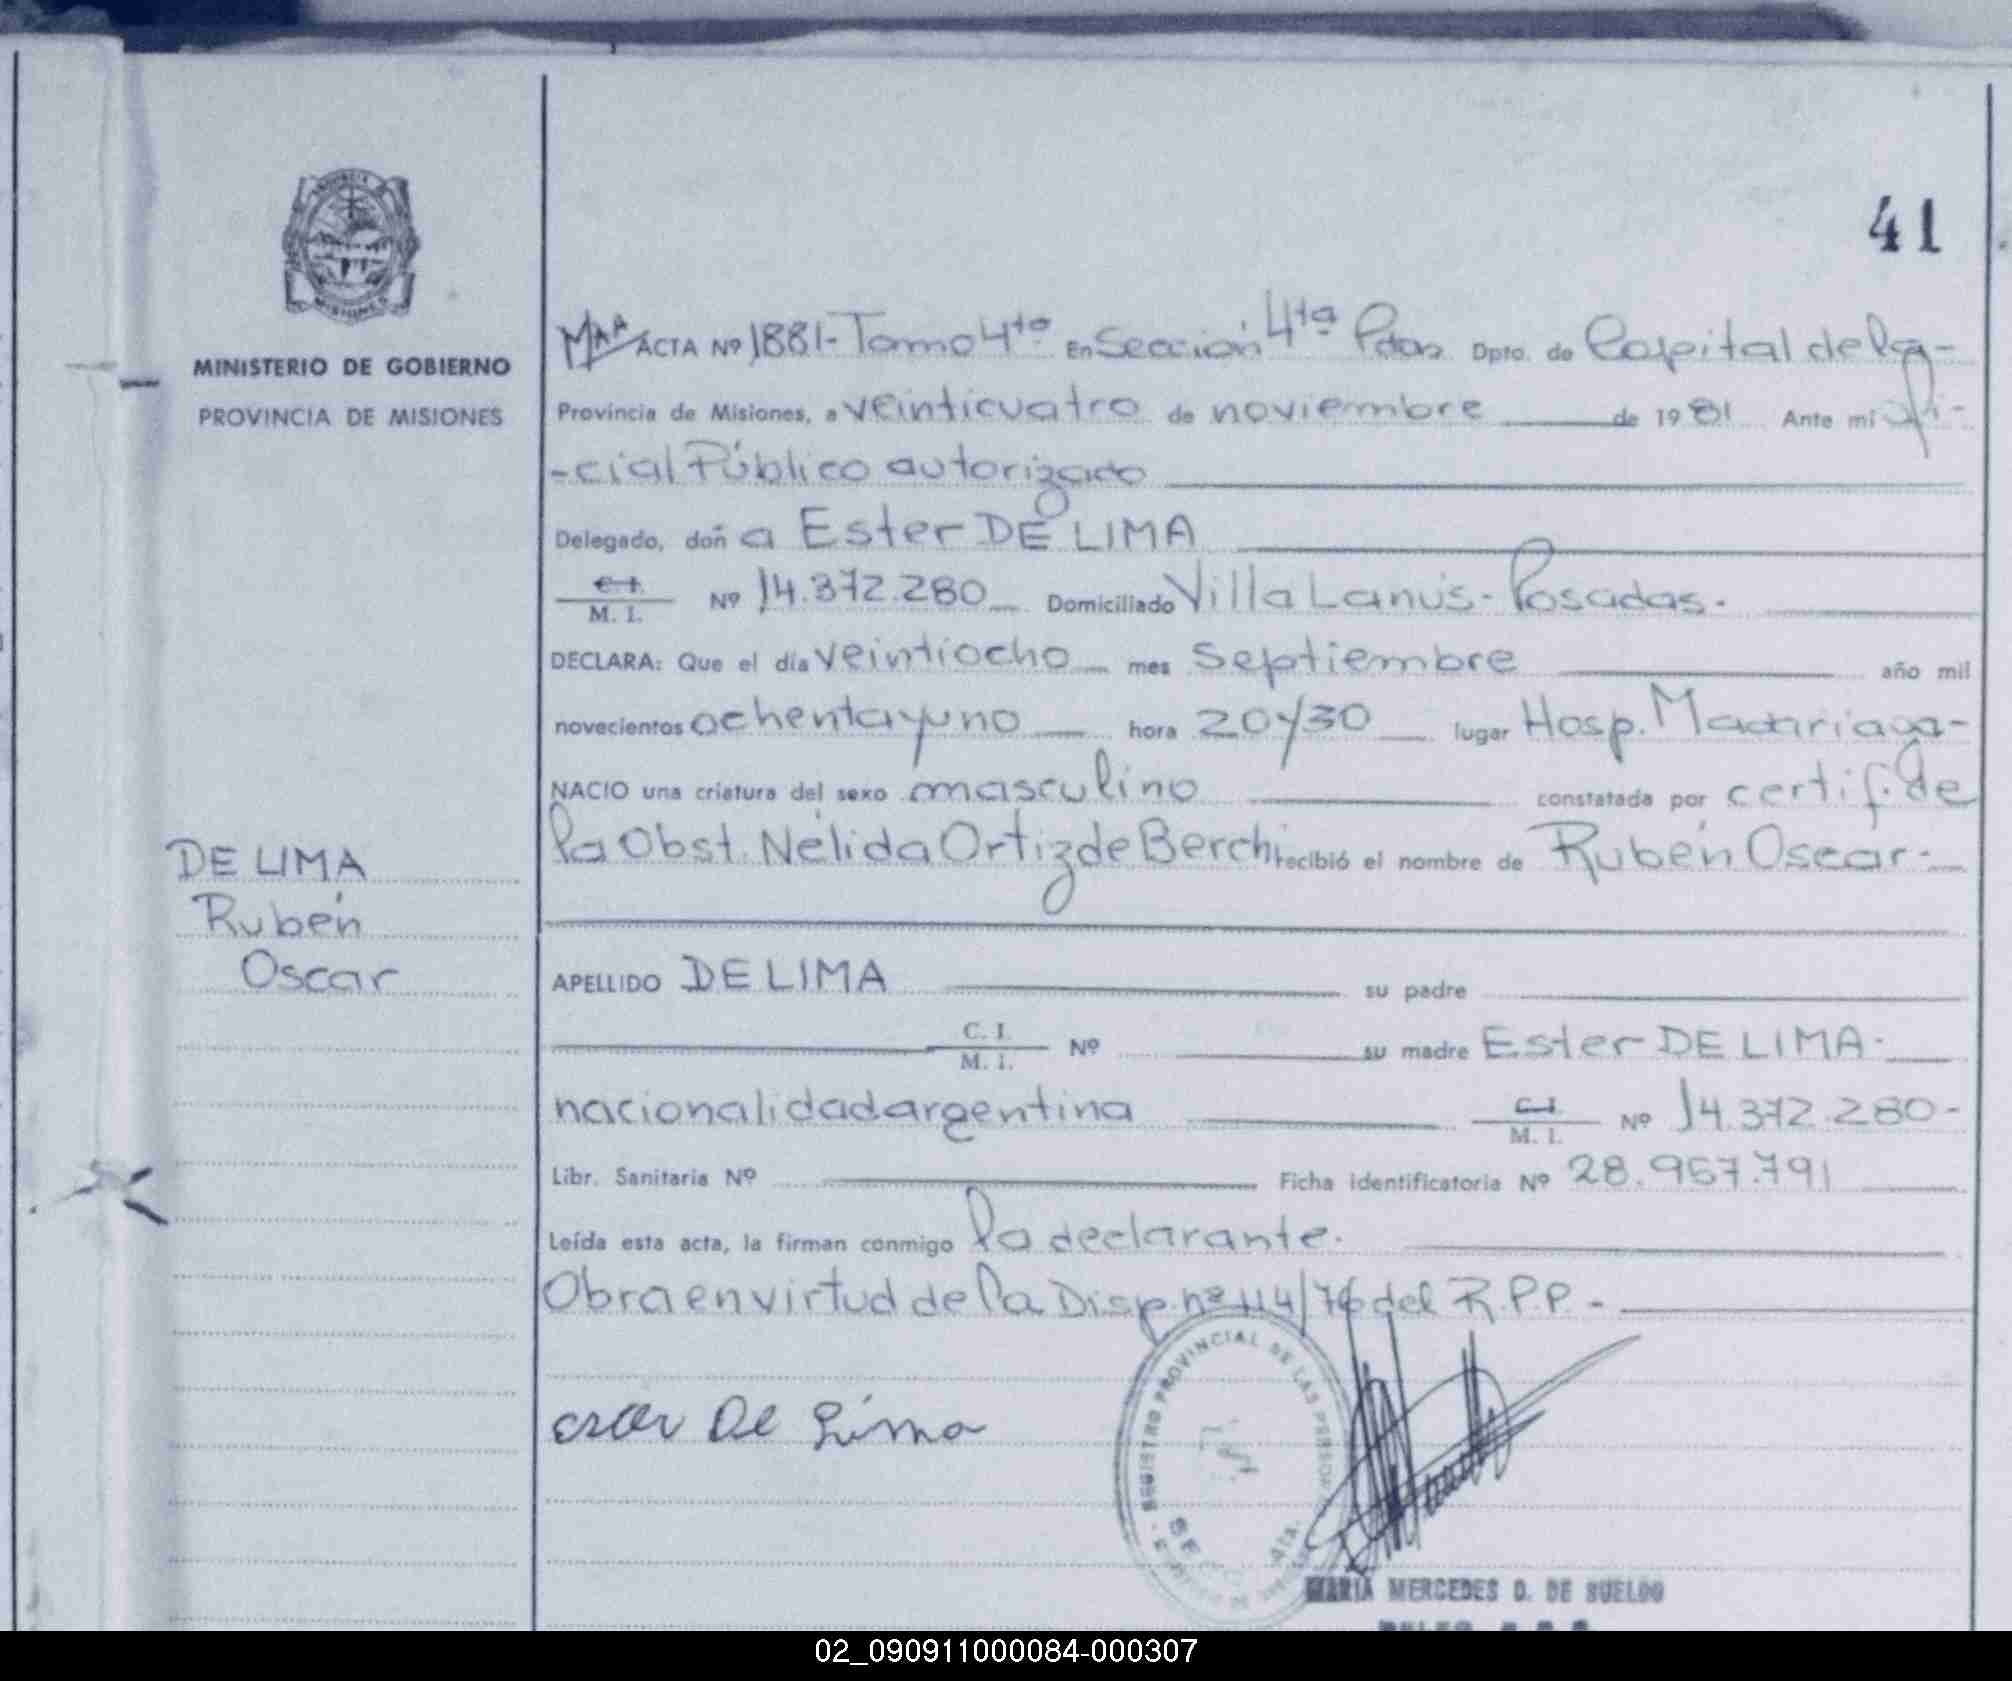 41
MINISTERIO DE GOBIERNO
PROVINCIA DE MISIONES
ACTA Nº 1881- Tomo 4to En Sección 4ta Pdas Dpto. de Capital de la-
Provincia de Misiones, a veinticuatro de noviembre de 1981 Ante mi Ofi-
-cial Público autorizado
Delegado, doña Ester DE LIMA
C.I.
M. I. Nº 14.372.280 Domiciliado Villa Lanús- Posadas.
DECLARA: Que el día veintiocho mes septiembre año mil
novecientos ochentayuno hora 20y30 lugar Hosp. Madariaga-
NACIO una criatura del sexo masculino constatada por certif. de
la Obst. Nélida Ortiz de Berchi recibió el nombre de Rubén Oscar.
DE LIMA
Rubén
Oscar
APELLIDO DE LIMA su padre
C. I.
M. I. Nº su madre Ester DE LIMA.
nacionalidad argentina C.I.
M. I. Nº 14.372.280-
Libr. Sanitaria Nº Ficha identificatoria Nº 28.967.791
Leída esta acta, la firman conmigo la declarante.
Obra en virtud de la Disp. nº 114/76 del R.P.P.-
De Lima
REGISTRO PROVINCIAL DE LAS
4ta.
MARIA MERCEDES D. DE SUELDO
02_090911000084-000307